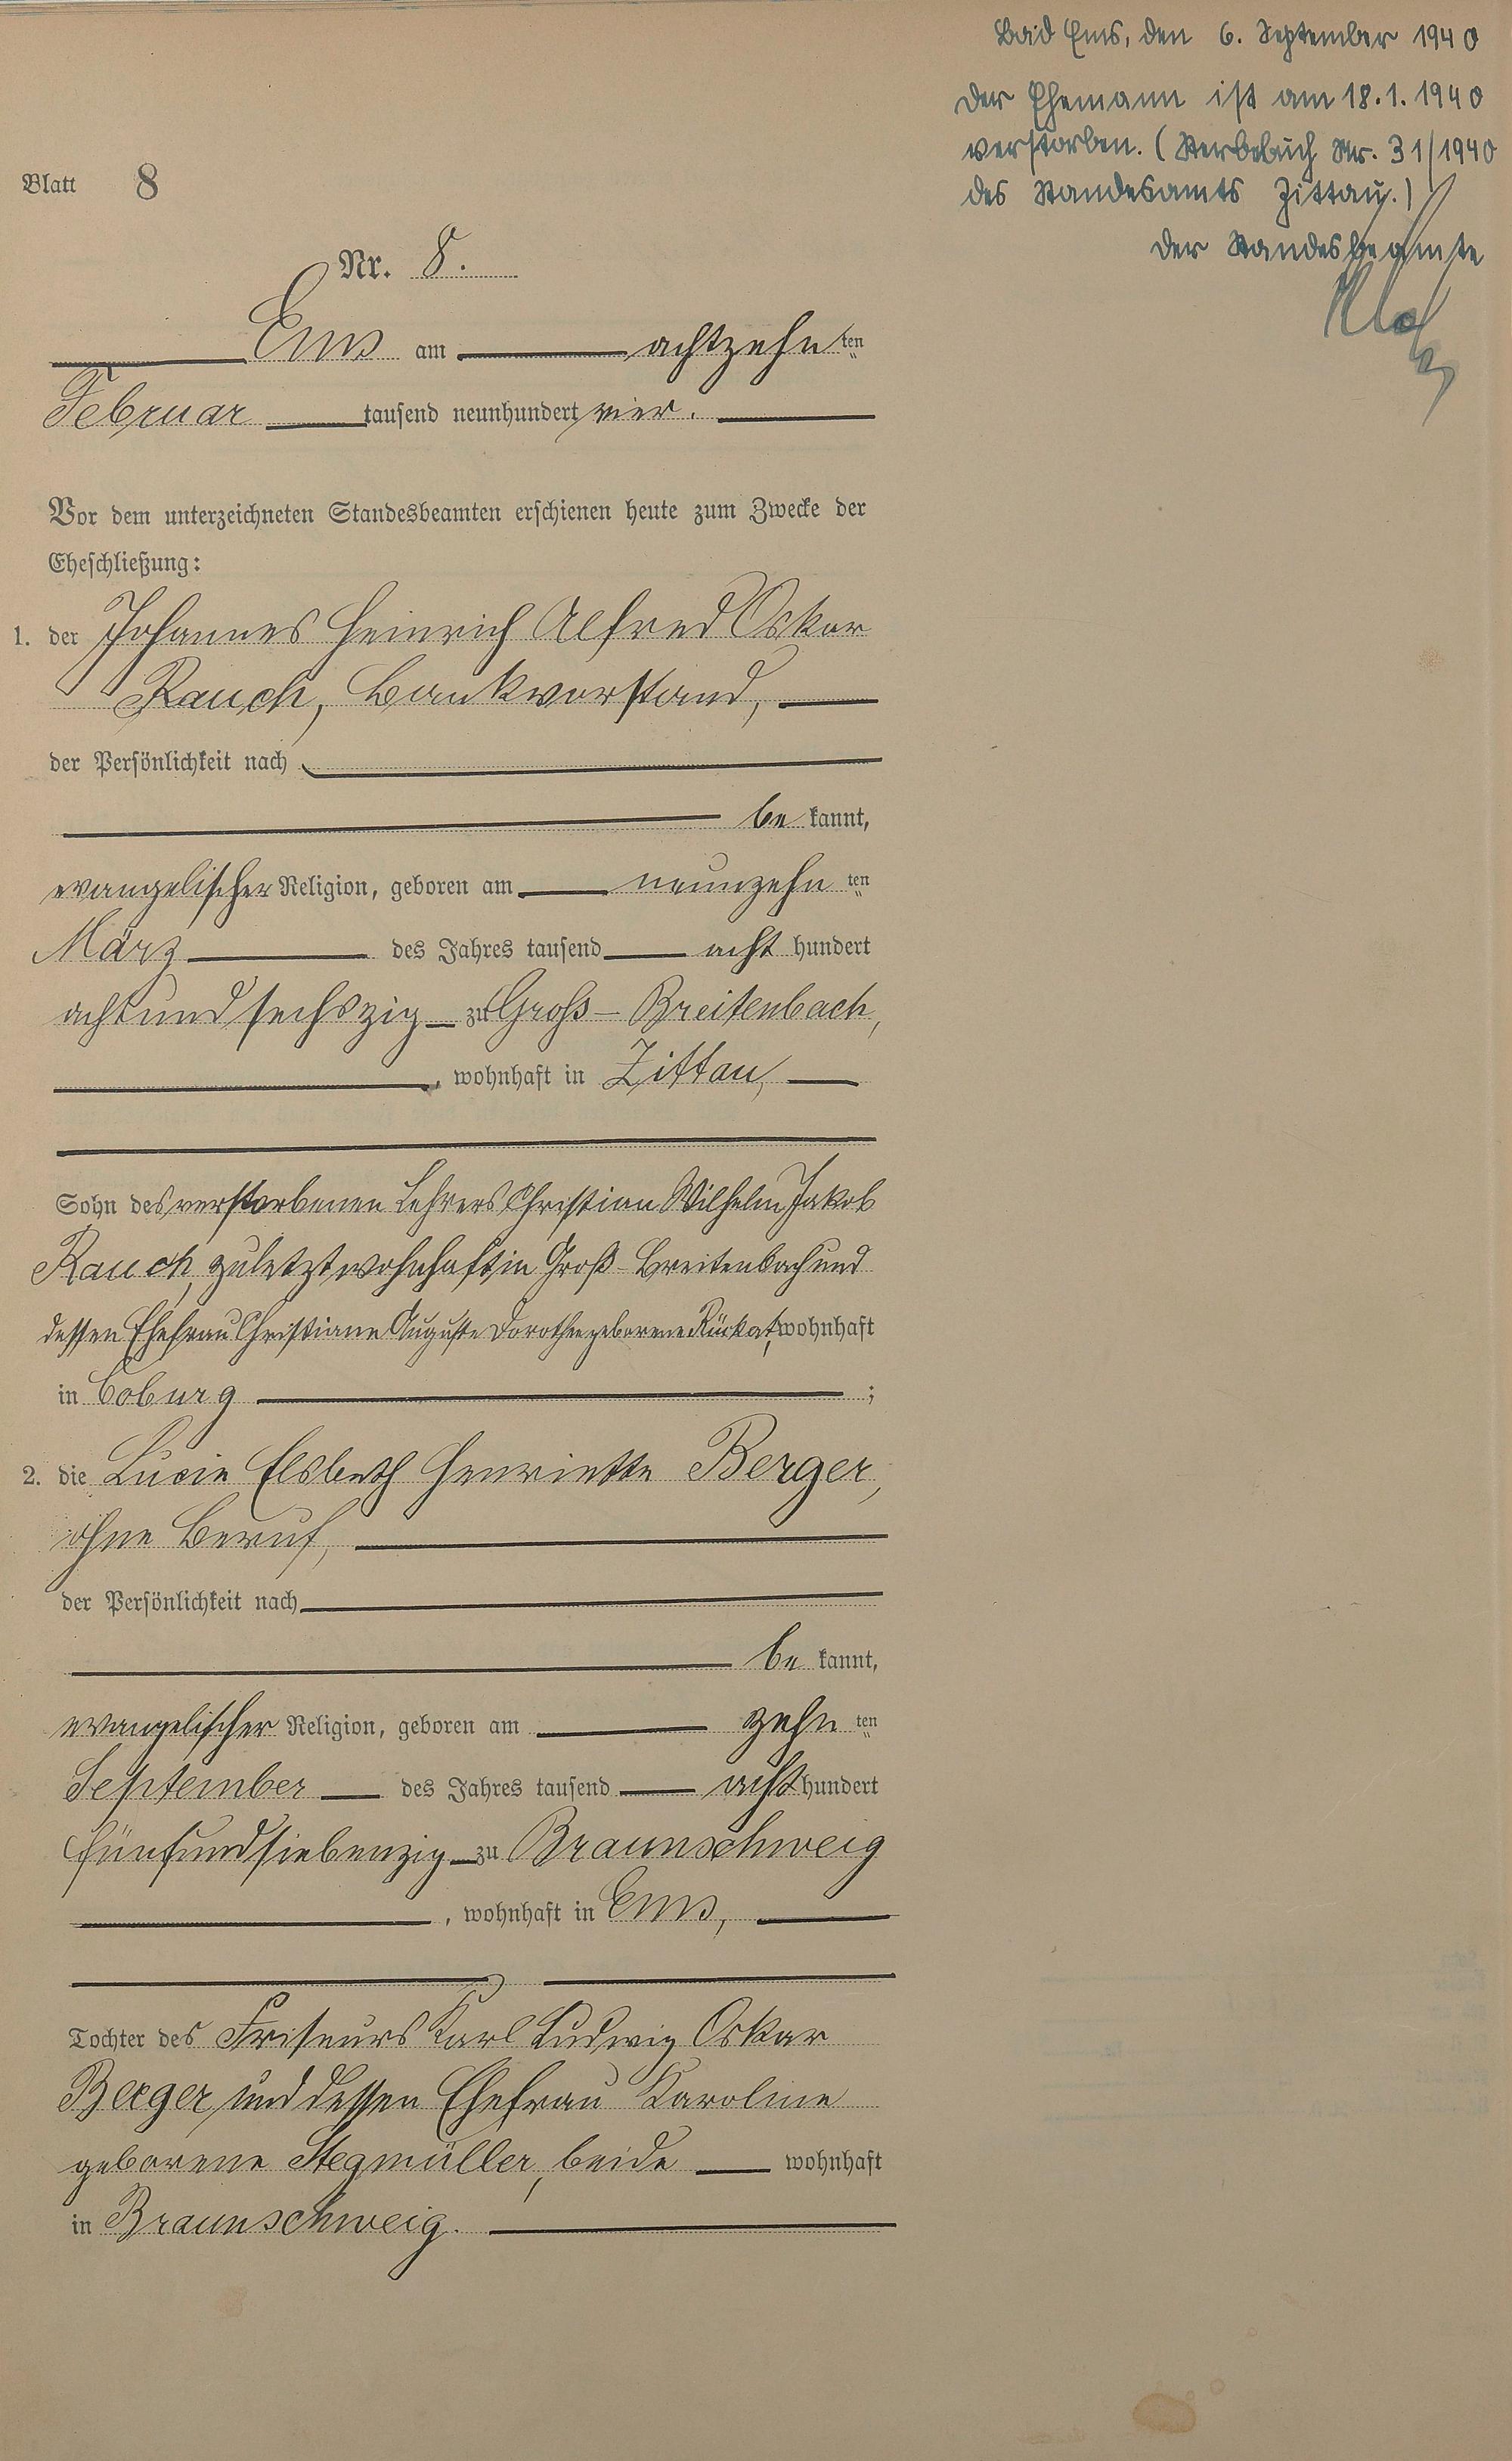 Bad Ems, den 6. September 1940
Der Ehemann ist am 18.1.1940
verstorben. (Sterbebuch Nr. 31/1940
des Standesamts Zittau.)
Der Standesbeamte
Blatt 8
Nr. 8.
Ems am achtzehnten
Februar tausend neunhundert vier.
Vor dem unterzeichneten Standesbeamten erschienen heute zum Zwecke der
Eheschließung:
1. der Johannes Heinrich Alfred Oskar
Rauch, Bankvorstand,
der Persönlichkeit nach
be kannt,
evangelischer Religion, geboren am neunzehn ten
März des Jahres tausend acht hundert
achtundsechszig zu Gross-Breitenbach,
, wohnhaft in Zittau,
Sohn des verstorbenen Lehrers Christian Wilhelm Jakob
Rauch, zuletzt wohnhaft in Groß-Breitenbach und
dessen Ehefrau Christiane Auguste Dorothee geborene wohnhaft
in Coburg ;
2. die Lucie Elsbeth Henriette Berger,
ohne Beruf,
der Persönlichkeit nach
be kannt,
evangelischer Religion, geboren am zehn ten
September des Jahres tausend acht hundert
fünfundsiebenzig zu Braunschweig
, wohnhaft in Ems,
Tochter des Friseurs Karl Ludwig Oskar
Berger und dessen Ehefrau Karoline
geborene Stegmüller, beide wohnhaft
in Braunschweig.